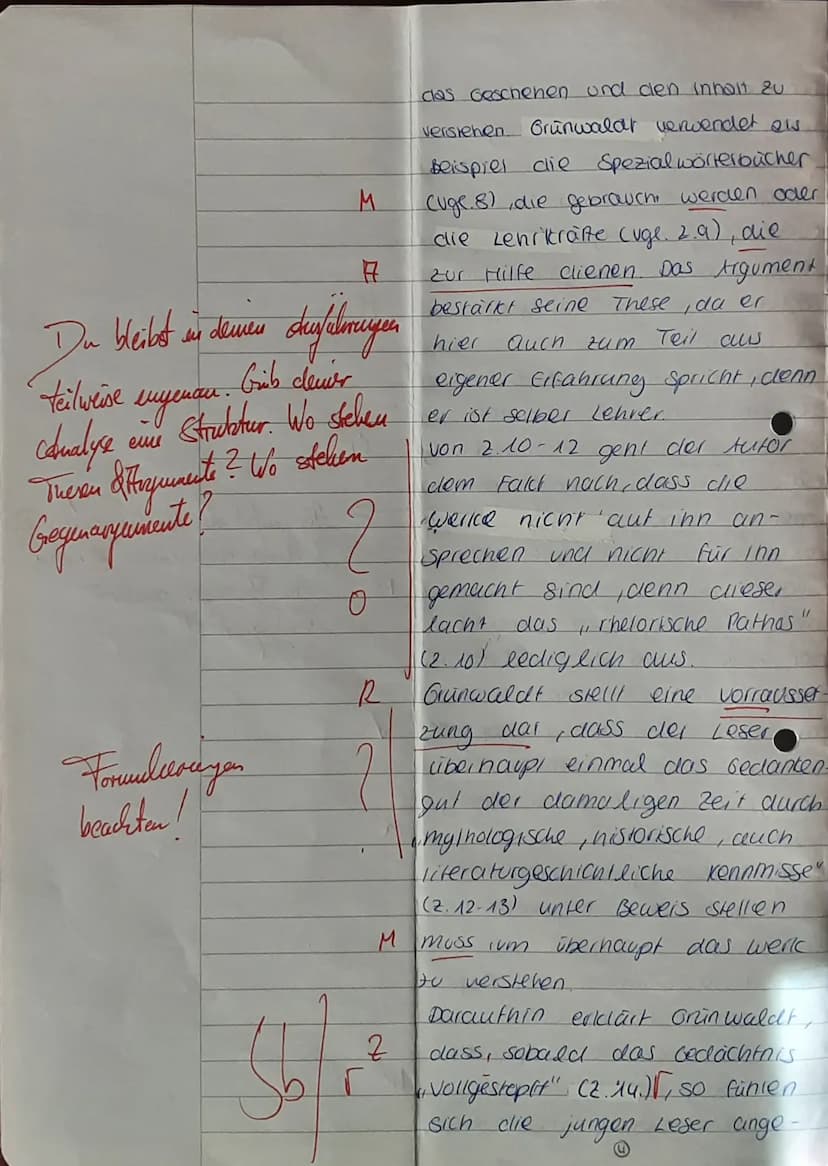 das Geschehen und den Inhalt zu
verstehen. Grünwaldt verwendet als
Beispiel die Spezialwörterbücher
M
(vgl. 8), die gebraucht werden oder
die Lehrkräfte (vgl. Z.9), die
A
zur Hilfe dienen. Das Argument
bestärkt seine These, da er
hier auch zum Teil aus
eigener Erfahrung spricht, denn
er ist selber Lehrer.
Du bleibst in deinen Ausführungen
teilweise ungenau. Gib deiner
Analyse eine Struktur. Wo stehen
Thesen & Argumente? Wo stehen
Gegenargumente?
von Z.10-12 geht der Autor
dem Fakt nach, dass die
Werke nicht auf ihn an-
?
sprechen und nicht für ihn
O
gemacht sind, denn dieser
lacht das „rhetorische Pathos"
(Z.10) lediglich aus.
R
Grünwaldt stellt eine Vorrausset-
zung dar, dass der Leser
Formulierungen
beachten!
?
überhaupt einmal das Gedanken-
gut der damaligen Zeit durch
„mythologische, historische, auch
literaturgeschichtliche Kenntnisse"
(Z.12-13) unter Beweis stellen
M
muss um überhaupt das Werk
zu verstehen.
Daraufhin erklärt Grünwaldt,
Sb
Z
dass, sobald das Gedächtnis
Γ
„vollgestopft" (Z.14.)Γ, so fühlen
sich die jungen Leser ange-
4